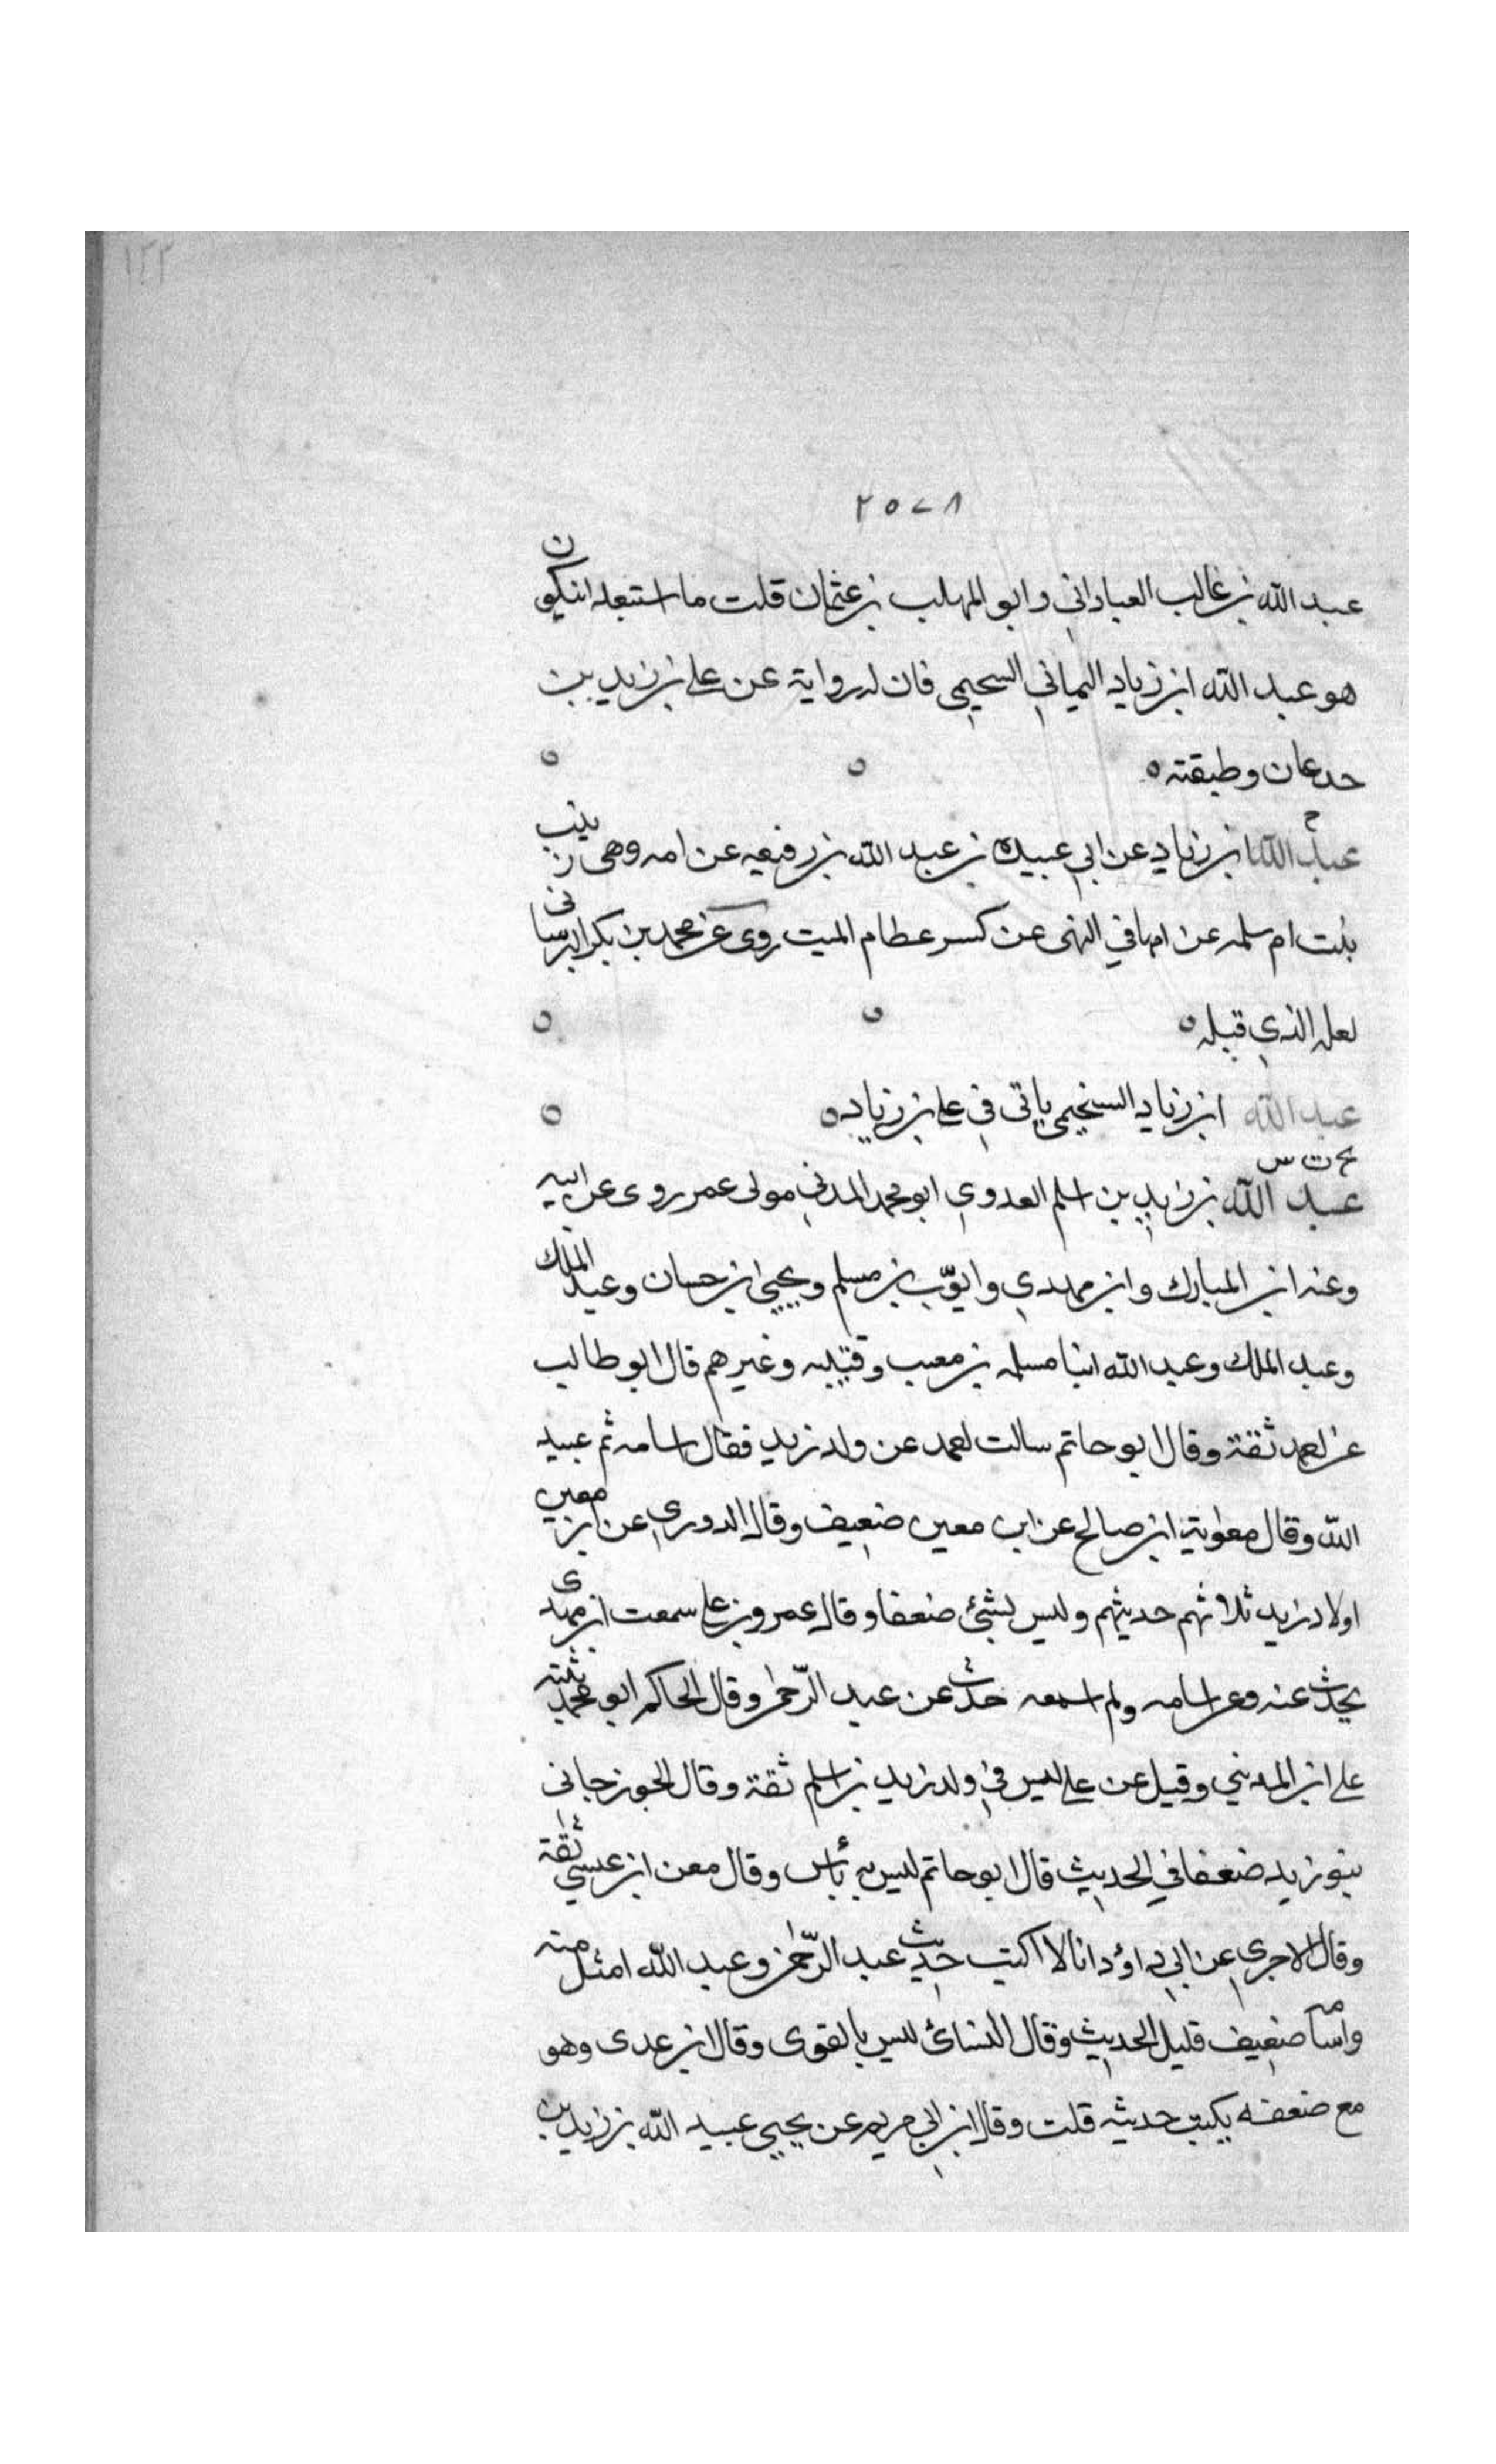 ١٢٢
٢٥٧٨
عبد الله بن غالب العباداني وابو المهلب بن عثمان قلت ما استبعد ان يكون
هو عبد الله ابن زياد اليماني السحيمي فان له رواية عن علي بن زيد بن
جدعان وطبقته ٥
عبد الله بن زياد عن ابي عبيدة بن عبد الله بن رفيعه عن امه وهي زينب
بنت ام سلمه عن امها في النهى عن كسر عظام الميت روى عن محمد بن بكر البرساني
لعله الذي قبله ٥
عبد الله ابن زياد السحيمي ياتي في علي بن زياد ٥
بخ ت س
عبد الله بن زيد بن اسلم العدوي ابو محمد المدني مولى عمر روى عن ابيه
وعنه ابن المبارك وابن مهدي وايوّب بن مسلم ويحيى ابن حسان وعبد الملك
وعبد الملك وعبد الله ابنا مسلمه بن معب وقتيبه وغيرهم قال ابو طالب
عن احمد ثقة وقال ابو حاتم سالت احمد عن ولد زيد فقال اسامه ثم عبيد
الله وقال معاوية ابن صالح عن ابن معين ضعيف وقال الدوري عن ابن معين
اولاد زيد ثلاثهم حديثهم وليس بشئ ضعفا وقال عمرو بن علي سمعت ابن مهدى
يحدث عنه وعن اسامه ولم اسمعه حدث عن عبد الرّحمن وقال الحاكم ابو محمد ثبته
علي ابن المديني وقيل عن علي ليس في ولد زيد بن اسلم ثقة وقال الجوزجانى
بنو زيد ضعفا في الحديث قال ابو حاتم ليس به بأس وقال معن ابن عيسي ثقة
وقال الاجري عن ابي داؤد انا لا اكتب حديث عبد الرّحمن وعبد الله امثل منه
واسامه ضعيف قليل الحديث وقال النسائ ليس بالقوى وقال ابن عدى وهو
مع ضعفه يكتب حديثه قلت وقال ابن ابي مريم عن يحيى عبيد الله بن زيد بن